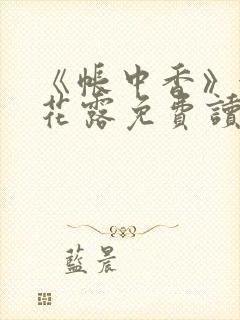 《帳中香》
花露免費讀
藍晨